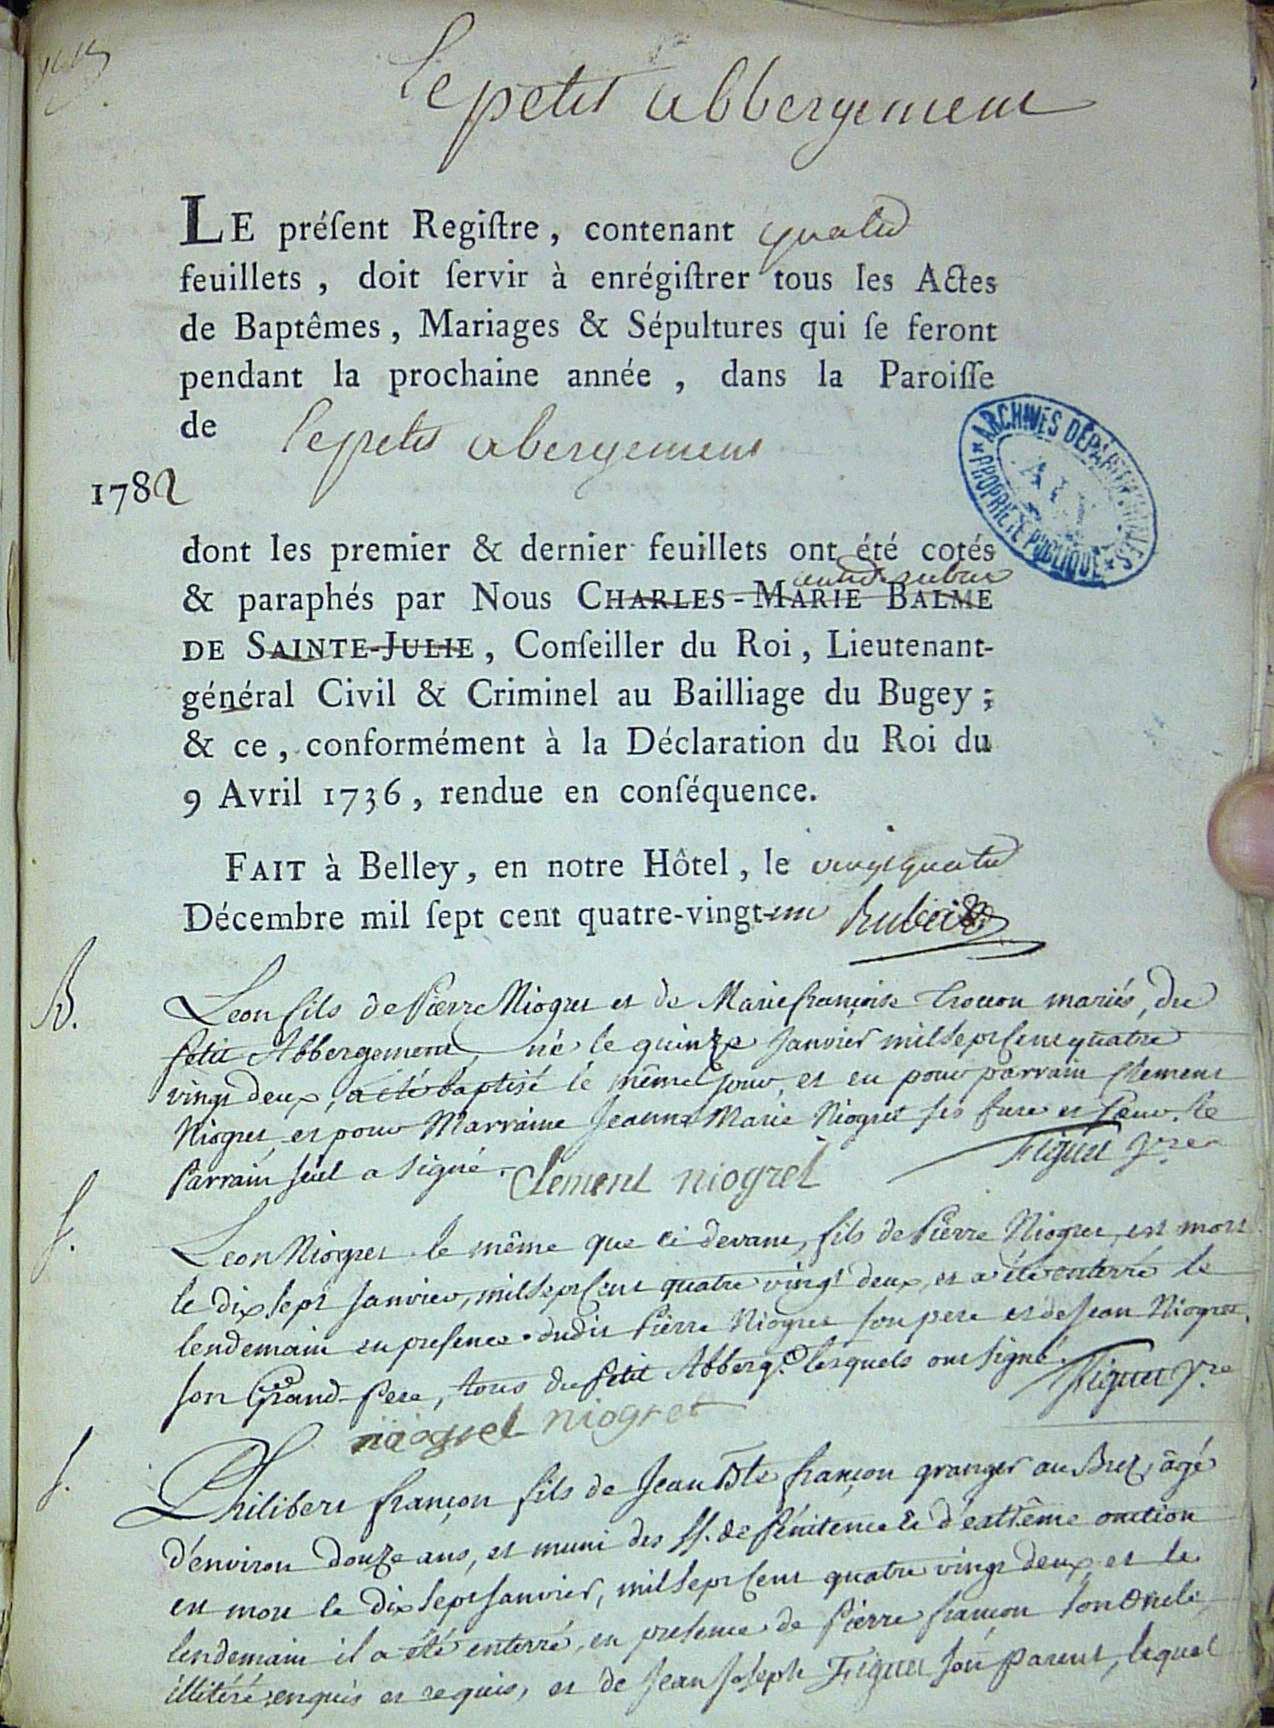 Le petit abbergement
LE préſent Regiſtre, contenant quatre
feuillets, doit ſervir à enrégiſtrer tous les Actes
de Baptêmes, Mariages & Sépultures qui ſe feront
pendant la prochaine année, dans la Paroiſſe
de le petit abergement
ARCHIVES DÉPARTEMENTALES
AIN
PROPRIÉTÉ PUBLIQUE
1782
dont les premier & dernier feuillets ont été cotés
& paraphés par Nous CHARLES-MARIE BALME
DE SAINTE-JULIE, Conſeiller du Roi, Lieutenant-
général Civil & Criminel au Bailliage du Bugey;
& ce, conformément à la Déclaration du Roi du
9 Avril 1736, rendue en conſéquence.
FAIT à Belley, en notre Hôtel, le vingt quatre
Décembre mil ſept cent quatre-vingt-un
B. Leon fils de Pierre Niogret et de Marie françoise mariés, du
petit Abbergement, né le quinze Janvier mil sept Cent quatre
vingt deux, a été baptisé le même jour, et eu pour parrain Clement
Niogret et pour Marraine Jeanne Marie Niogret ses frere et soeur. le
Parrain seul a signé. Clement niogret Figuet
S. Leon Niogret le même que ci devant, fils de Pierre Niogret, est mort
le dix sept Janvier, mil sept Cent quatre vingt deux, et a été enterré le
lendemain en presence dudit Pierre Niogret son pere et de Jean Niogret
son Grand-Pere, tous du Petit Abberg.t lesquels ont signé. Figuet
niogret niogret
S. Philibert françon fils de Jean Bte françon granger au Bret, âgé
d'environ douze ans, et muni des SS. de Pénitence & d'extrême onction
est mort le dix sept Janvier, mil sept Cent quatre vingt deux, et le
lendemain il a été enterré, en presence de Pierre françon son oncle,
illitéré, enquis et requis, et de Jean Joseph Figuet son parent, lequel